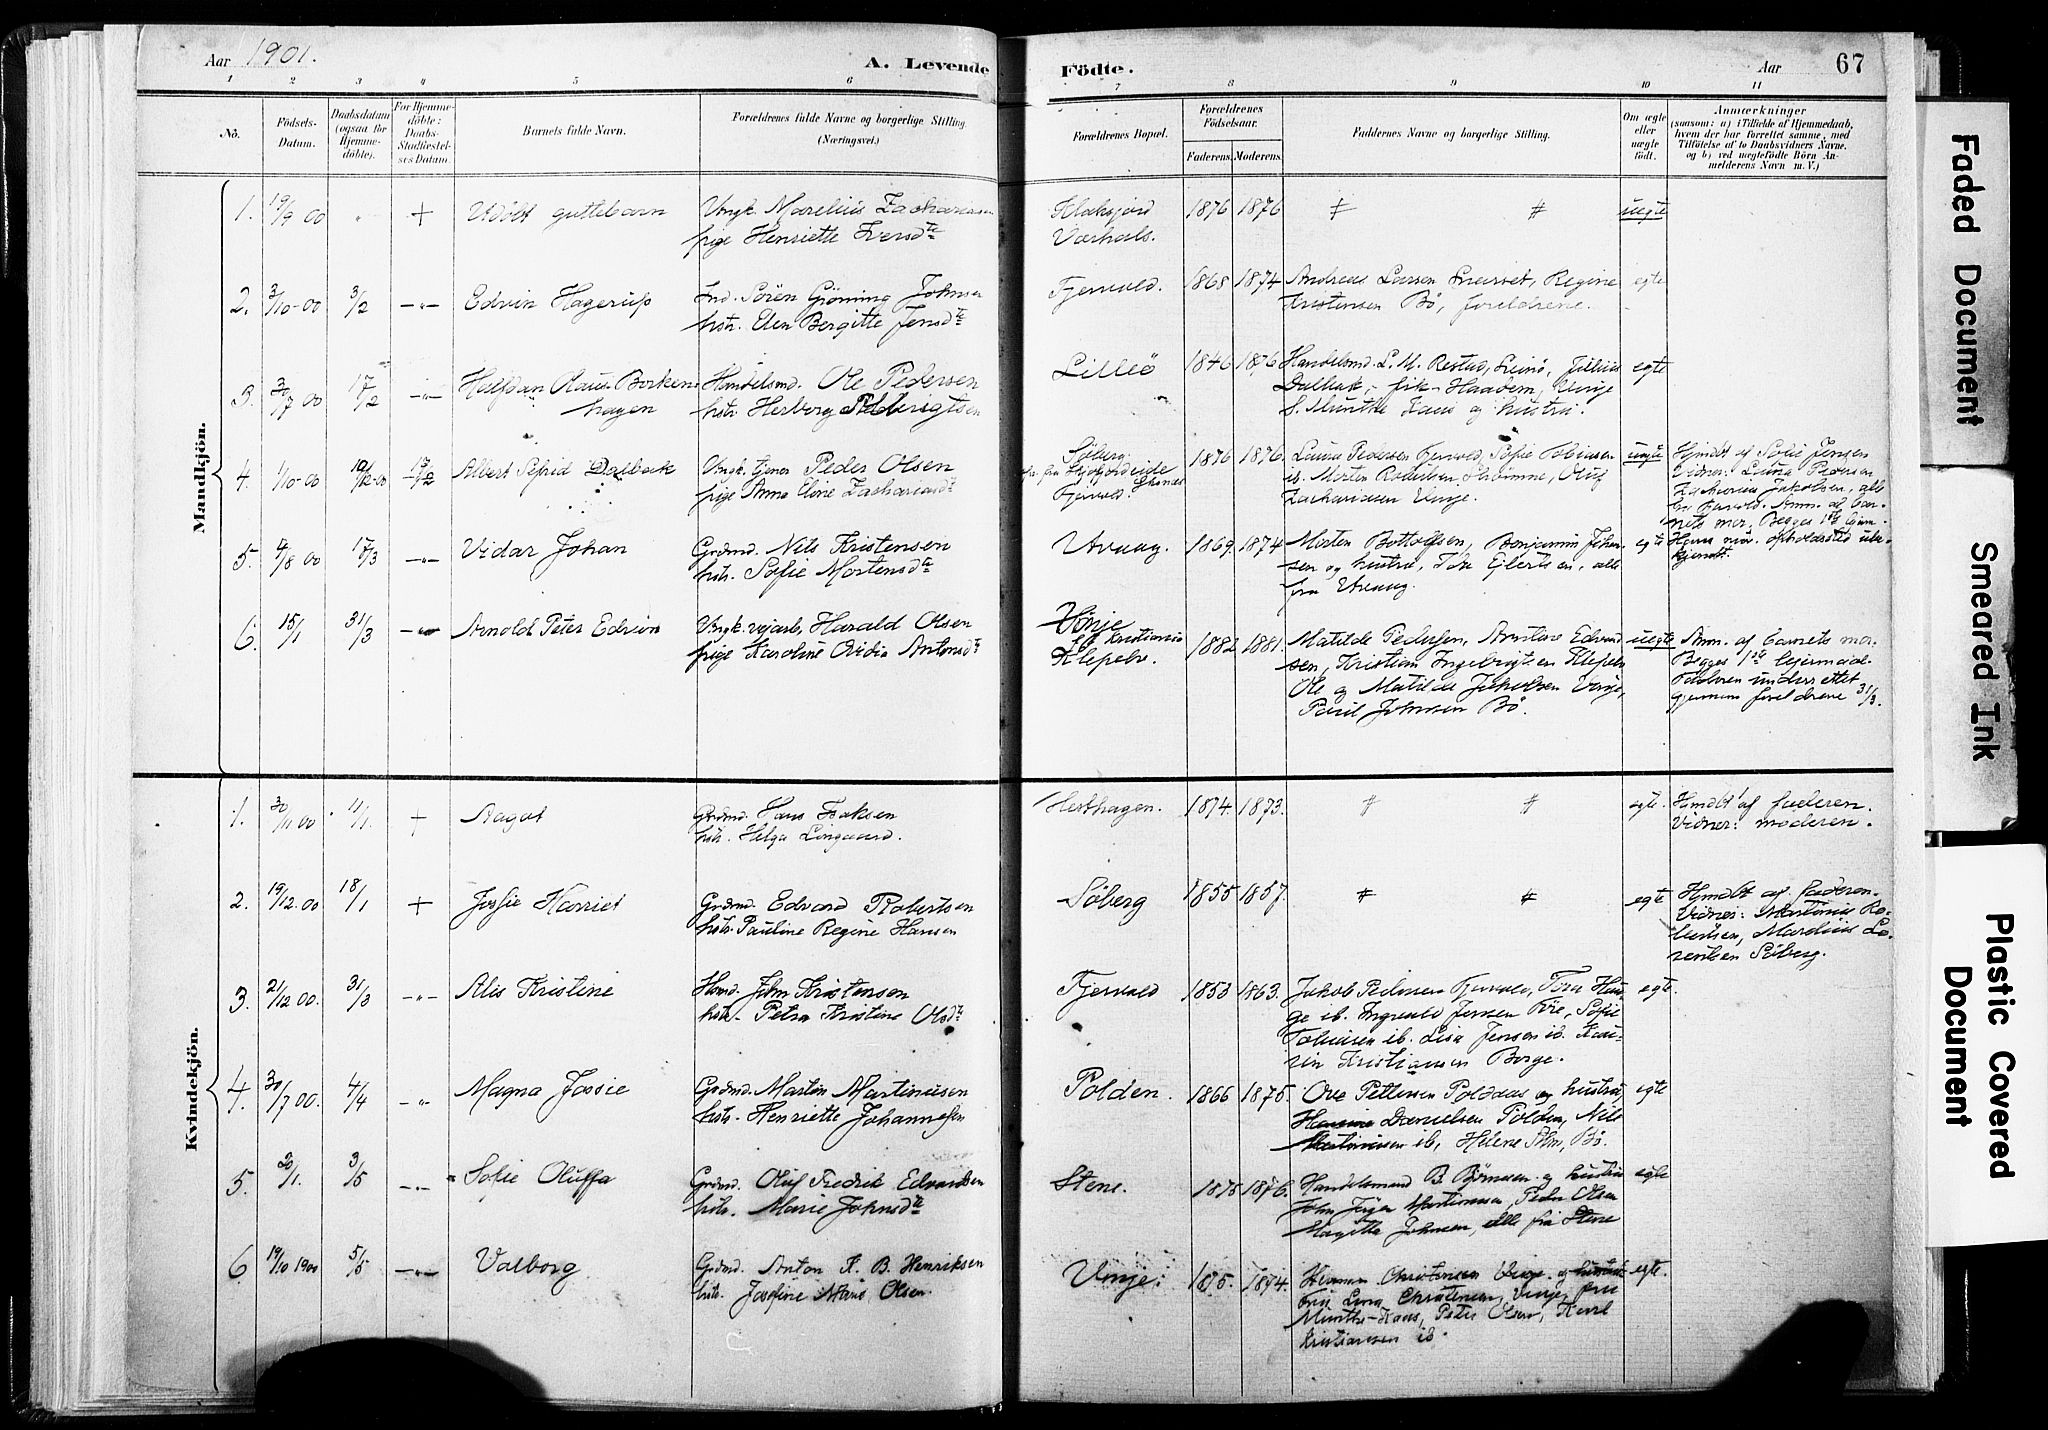 Aar 1901.
A. Levende
Födte.
Aar
67
1 2 3 4 5 6 7 8 9 10 11
Nô.
Födsels-
Datum.
Daabsdatum
(ogsaa for
Hjemme-
döbte).
For Hjemme-
döbte:
Daabs-
Stadfæstel-
ses Datum.
Barnets fulde Navn.
Forældrenes fulde Navne og borgerlige Stilling
(Næringsvei.)
Forældrenes Bopæl.
Forældrenes
Födselsaar.
Faderens.
Moderens.
Faddernes Navne og borgerlige Stilling.
Om ægte
eller
uægte
födt.
Anmærkninger
(saasom: a) i Tilfælde af Hjemmedaab,
hvem der har forrettet samme, med
Tilföielse af to Daabsvidners Navne.
og b) ved uægtefödte Börn An-
melderens Navn m. V.)
Mandkjön.
1. 19/9 00 " + Udöbt guttebarn
Ungk. Marelius Zachariassen
pige Henriette Iversdtr
Værhals.
1876 1876 # # uegte
2. 3/10-00 3/2 -"- Edvin Hagerup
Ind. Sören Gröning Johnsen
hstr. Elen Bergitte Jensdtr
Fjervold. 1868 1874
Andreas Larsen Regine
Kristensen Bö, foreldrene.
egte
3. 30/7 00 17/2 -"- Halfdan Olaus Borken-
hagen
Handelsmd. Ole Pedersen
hstr. Herborg
Lilleö 1846 1876
Handelsmd. L. M. Restad,
Dalbak,
S. Munthe Kaas og hustru.
egte
4. 1/10-00 19/12-00 17/2 Albert Sefrid Dalbak
Ungk. tjener Peder Olsen
pige Anna Eline Zachariasdtr
Söberg
Fjervold.
1876 1876.
Laura Pedersen Fjervold, Sofie Tobiassen
ib. Morten Strömme, Oluf
Zachariassen Vinje.
uegte
Hjmdbt af Sofie Jensen
Vidner: Laura Pedersen
Zacharias Jakobsen, alle
fra Fjervold. Anm. af bar-
nets mor. Begges 1ste
opholdssted ube-
kjendt.
5. 14/8 00 17/3 -"- Vidar Johan
Grdmd. Nils Kristensen
hstr. Sofie Mortensdtr
Utvaag. 1869. 1874
Morten Bottolfsen, Benjamin Johan-
sen og hustru, Ejlertsen, alle
fra Utvaag.
egte
6. 15/1 31/3 -"- Arnold Peter Edvin
Ungk. vejarb. Harald Olsen
pige Karoline Ovidia Antonsdtr
Vinje
Kristiania
Klepelv.
1882 1881.
Matilde Pedersen, Edvard-
sen, Kristian Ingebrigtsen Klepelv
Ole og Matilde Jakobsen Vinje,
Paul Johnsen Bö.
uegte
Anm. af barnets mor.
Begges 1ste lejermaal.
Fadderen underrettet
gjennem foreldrene 31/3.
Kvindekjön.
1. 30/11 00 11/1. + Aagot
Grdmd. Hans Isaksen
hstr. Helga Lingaard.
Hesthagen. 1874. 1873. # # egte.
Hjmdbt af faderen.
Vidner: moderen.
2. 19/12.00 18/1 + Jossie Harriet
Grdmd. Edvard Robertsen
hstr. Pauline Regine Hansen
Söberg 1855 1857. # # egte
Hjmdbt af faderen.
Vidner: Martinius Ro-
bertsen, Mardius Lo-
rentsen Söberg.
3. 21/12 00. 31/3 -"- Alis Kristine
Hsmd. John Kristensen
hstr. Petra Kristine Olsdtr
Fjervold 1853 1863.
Jakob Pedersen Fjervold, Tora Hau-
ge ib. Ingvald Jensen Sofie
Tobiassen ib. Lisa Jensen ib. Kau-
rin Kristiansen Borge.
egte.
4. 30/7 00. 4/4 -"- Magna Jossie
Grdmd. Marton Martinussen
hstr. Henriette Johannesen
Polden. 1866 1875.
Ove Pettersen Poldaas og hustru,
Hansine Danielsen Polden, Nils
Martinussen ib, Helene Bö.
egte
5. 20/1. 3/5 -"- Sofie Oluffa
Grdmd. Oluf Fredrik Edvardsen
hstr. Marie Johnsdtr
Stene. 1875 1876.
Handelsmand B. Björnsen og hustru
John Martinussen, Peder Olsen
Magitta Johnsen, alle fra Stene
egte
6. 19/10 1900 5/5 -"- Valborg
Grdmd. Anton K. B. Henriksen
hstr. Josefine Marie Olsen.
Vinje: 1875. 1874.
Herman Christensen Vinje og hustru
Lina Christensen, Vinje, fru
Munthe-Kaas, Peter Olsen, Karl
Kristiansen ib.
egte.
Faded Document
Smeared Ink
Plastic Covered
Document